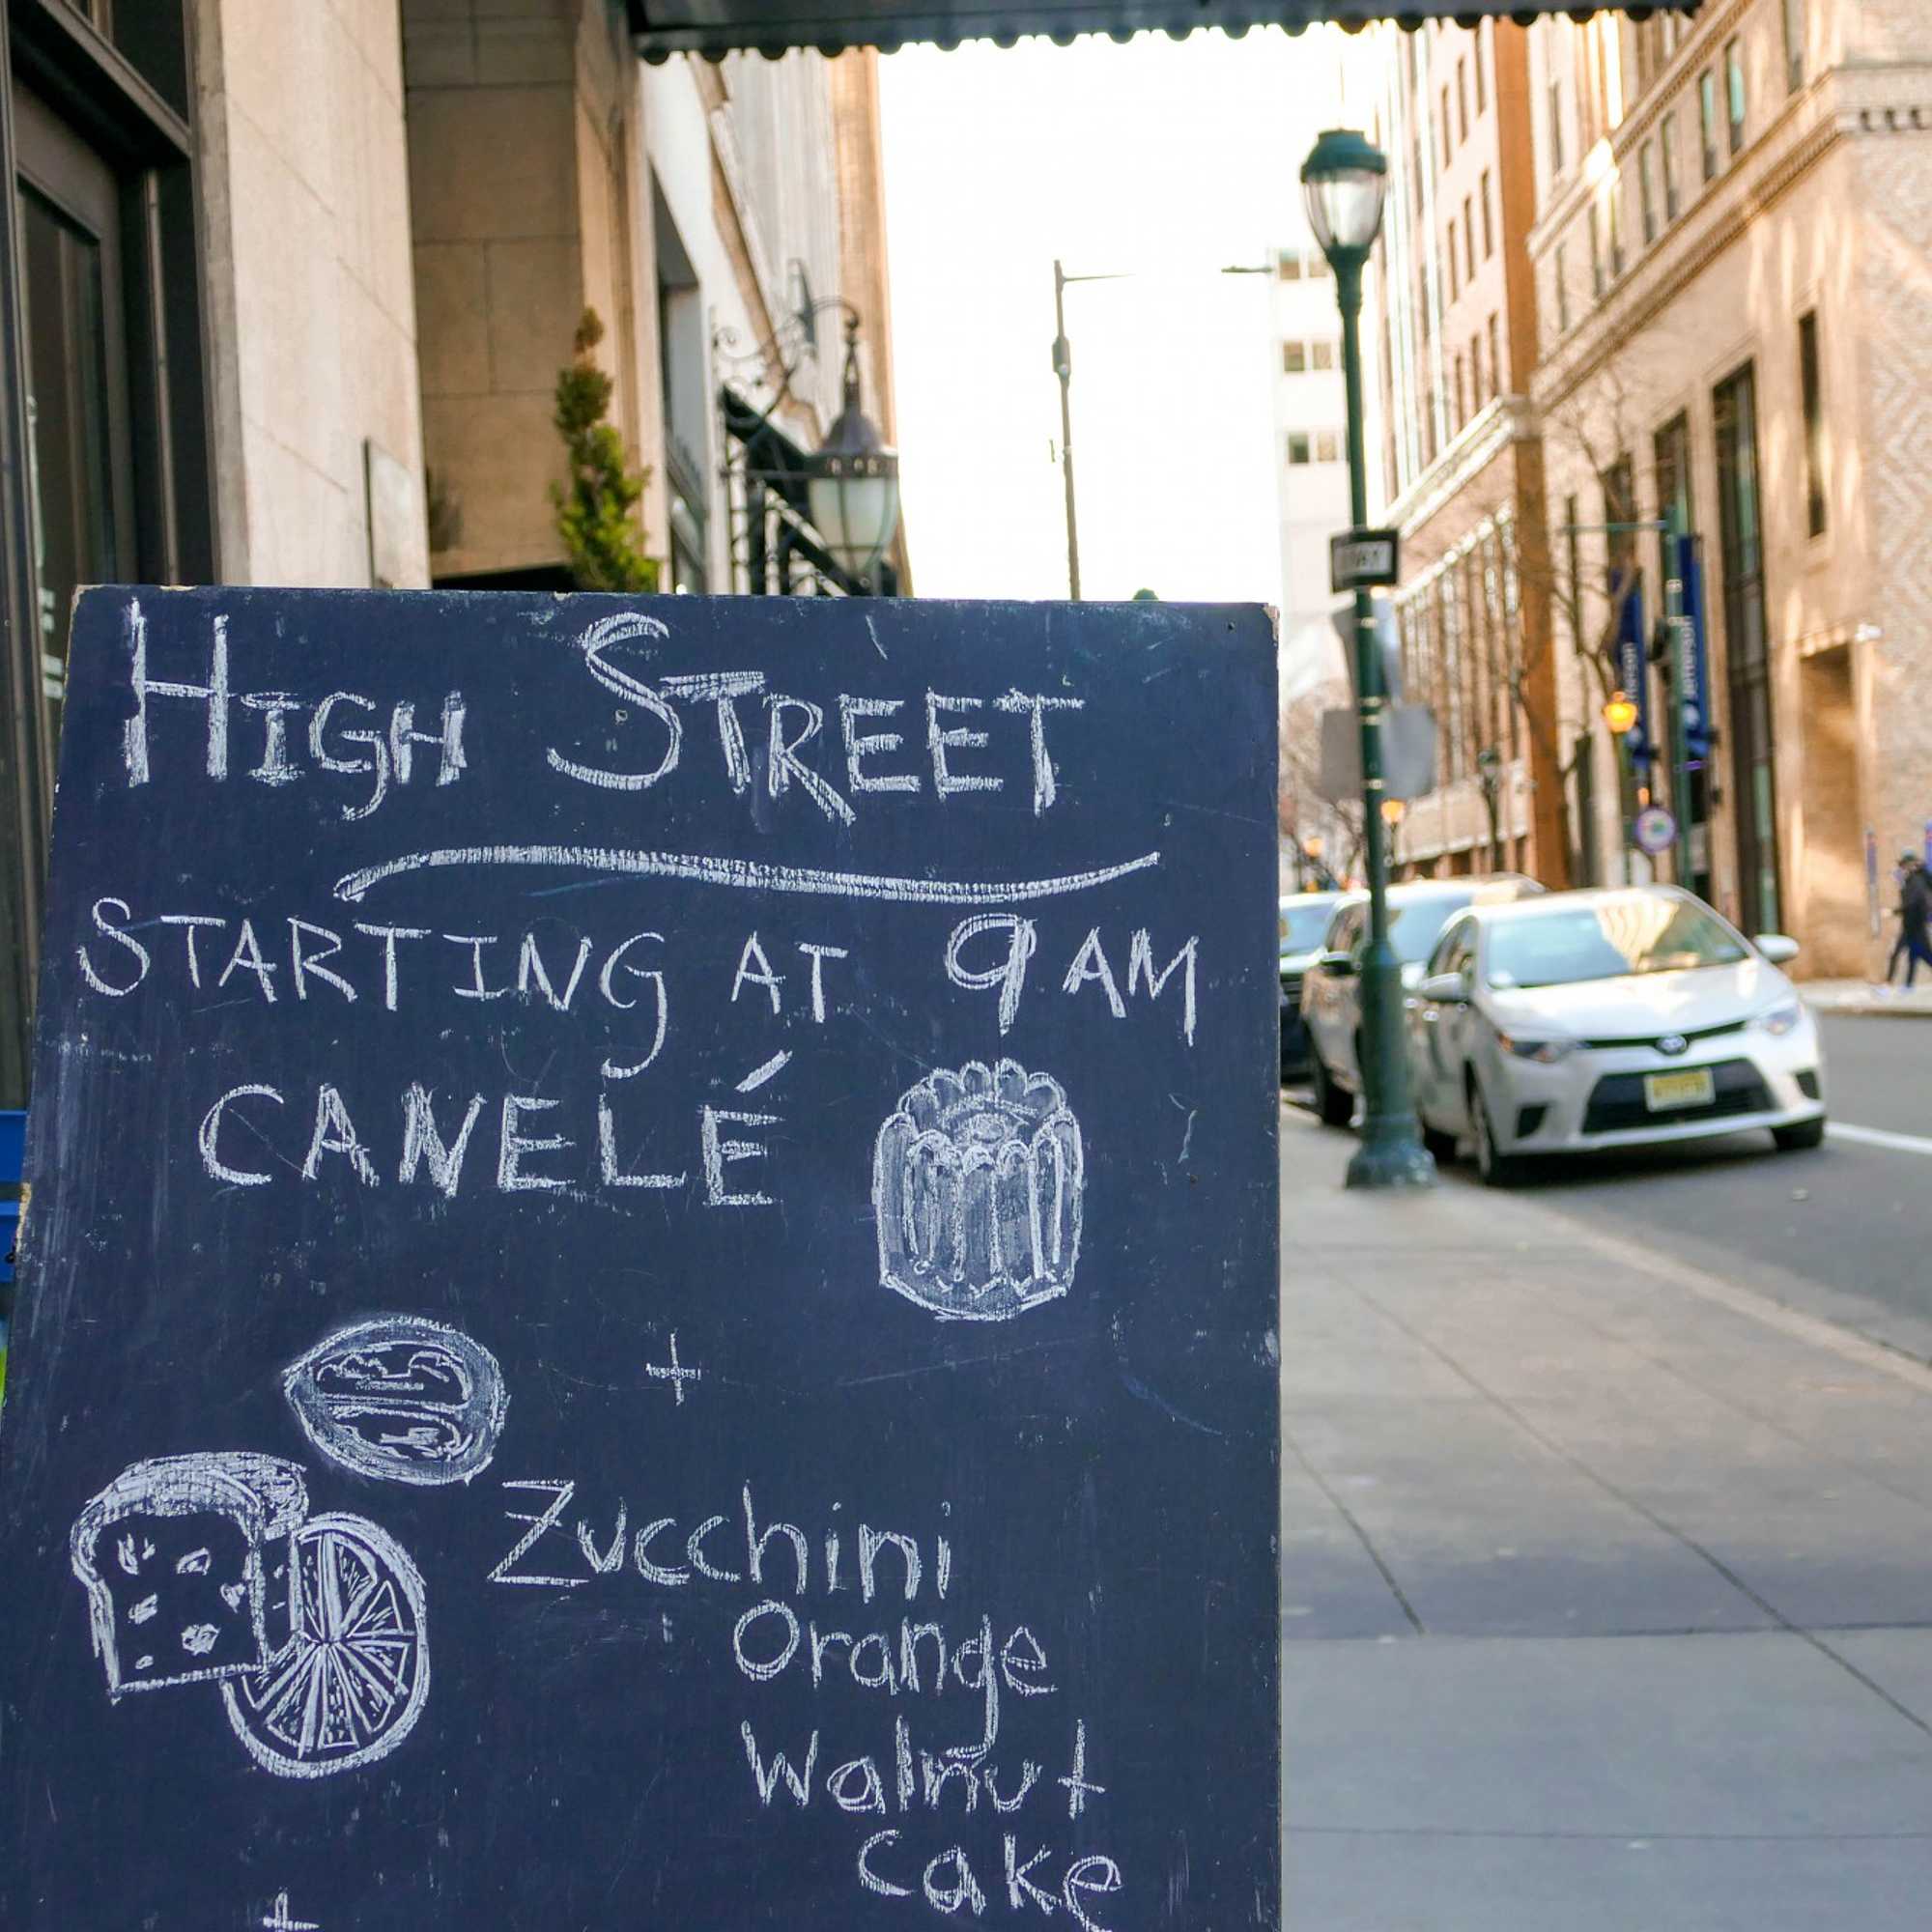 HIGH STREET
STARTING AT 9AM
CANELÉ
+
Zucchini
Orange
Walnut
Cake
+